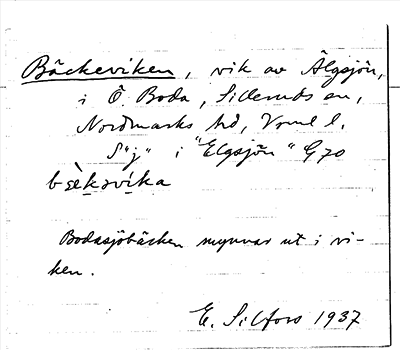 Bäckeviken, vik av Älgsjön,
i Ö. Boda, Silleruds sn,
Nordmarks hd, Vrml l.
S"j" i "Elgsjön" G 70
bsèkəvika
Bodasjöbäcken mynnar ut i vi-
ken.
E. Silfors 1937